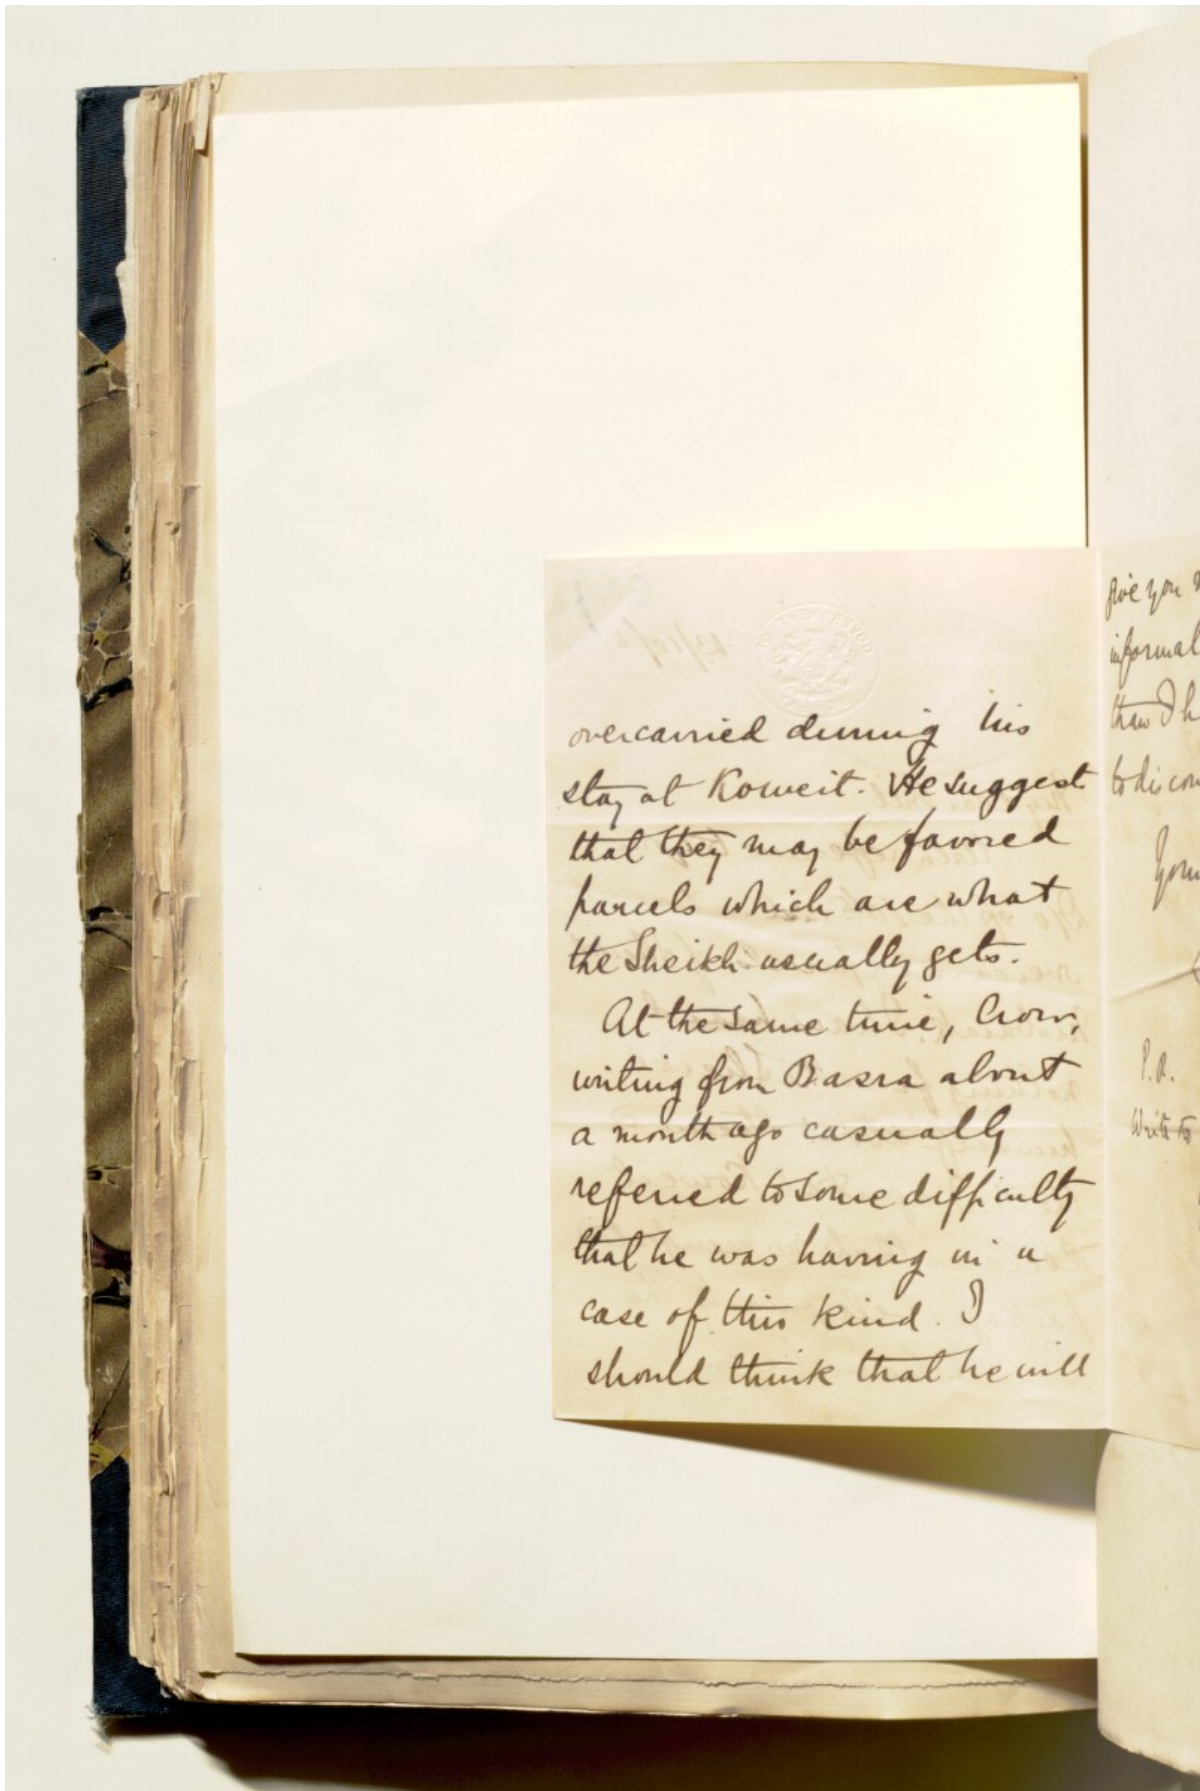 overcarried during his
stay at Koweit. He suggest
that they may be favored
parcels which are what
the Sheikh usually gets.
At the same time, Crow,
writing from Basra about
a month ago casually
referred to some difficulty
that he was having in a
case of this kind. I
should think that he will
give you
informal
than I h
to discon
P.S.
Write to